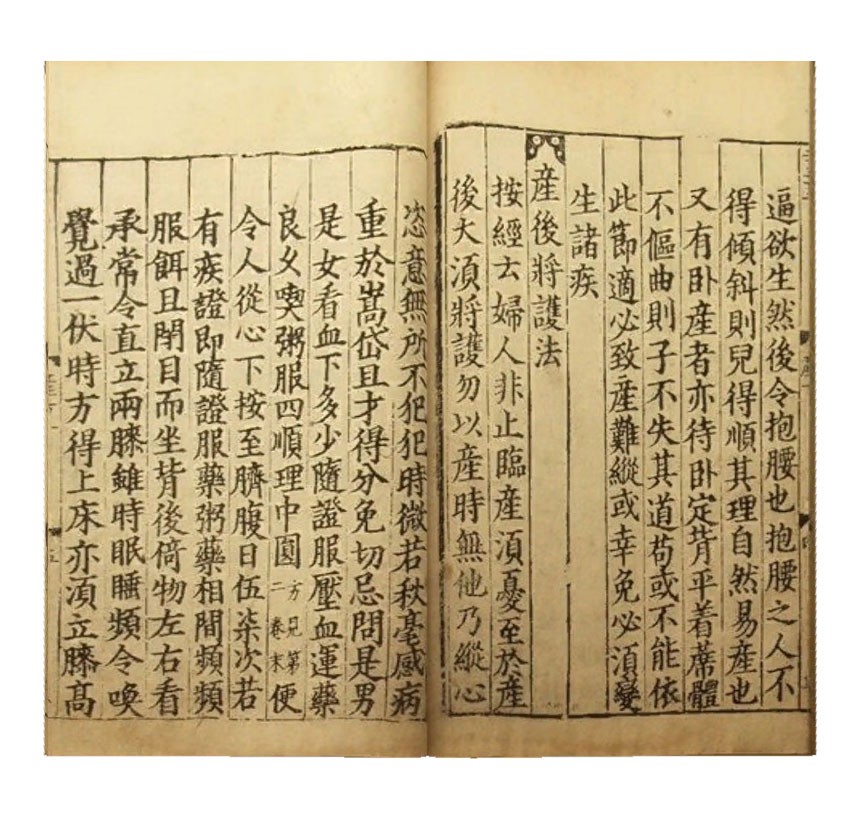 逼欲生然後令抱腰也抱腰之人不
得傾斜則兒得順其理自然易產也
又有卧產者亦待卧定背平着蓆體
不傴曲則子不失其道苟或不能依
此節適必致產難縱或幸免必湏變
生諸疾
產後將護法
按經云婦人非止臨產湏憂至於產
後大湏將護勿以產時無他乃縱心
恣意無所不犯犯時微若秋毫感病
重於嵩岱且才得分免切忌問是男
是女看血下多少隨證服壓血運藥
良久喫粥服四順理中圎方見第二卷末便
令人從心下按至臍腹日伍柒次若
有疾證即隨證服藥粥藥相間頻頻
服餌且閉目而坐背後倚物左右看
承常令直立兩膝雖時眠睡頻令喚
覺過一伏時方得上床亦湏立膝高